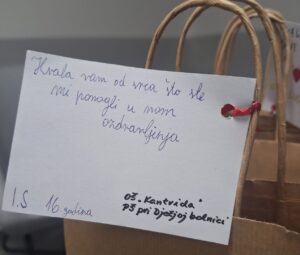 Hvala vam od srca što ste
mi pomogli u mom
ozdravljenju
I.S 16 godina
OŠ „Kantrida"
PŠ pri Dječjoj bolnici